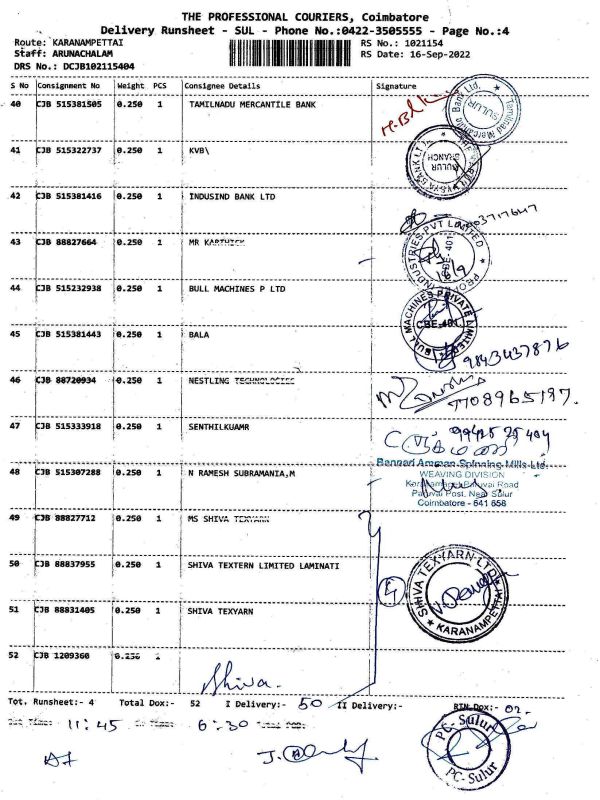 THE PROFESSIONAL COURIERS, Coimbatore
Delivery Runsheet - SUL - Phone No.:0422-3505555 - Page No.:4
Route: KARANAMPETTAI RS No.: 1021154
Staff: ARUNACHALAM RS Date: 16-Sep-2022
DRS No.: DCJB102115404
S No Consignment No Weight PCS Consignee Details Signature
40 CJB 515381505 0.250 1 TAMILNADU MERCANTILE BANK
41 CJB 515322737 0.250 1 KVB\
42 CJB 515381416 0.250 1 INDUSIND BANK LTD
43 CJB 88827664 0.250 1 MR KARTHICK
44 CJB 515232938 0.250 1 BULL MACHINES P LTD
BULL MACHINES PRIVATE LIMITED
CBE-401.
45 CJB 515381443 0.250 1 BALA
9843437876
46 CJB 88720934 0.250 1 NESTLING TECHNOLOGIES
7708965197.
47 CJB 515333918 0.250 1 SENTHILKUAMR
Bannari Amman Spinning Mills Ltd.
WEAVING DIVISION
48 CJB 515307288 0.250 1 N RAMESH SUBRAMANIA,M
Karanampet Paruvai Road
Paruvai Post, Near Sulur
Coimbatore - 641 658
49 CJB 88827712 0.250 1 MS SHIVA TEXYARN
50 CJB 88837955 0.250 1 SHIVA TEXTERN LIMITED LAMINATI
SHIVA TEXYARN LTD
KARANAMPETTAI
4
51 CJB 88831405 0.250 1 SHIVA TEXYARN
52 CJB 1209360 0.250 1
Shiva.
Tot. Runsheet:- 4 Total Dox:- 52 I Delivery:- 50 II Delivery:- RTN Dox:- 02.
11:45 6:30
PC-Sulur
PC-Sulur